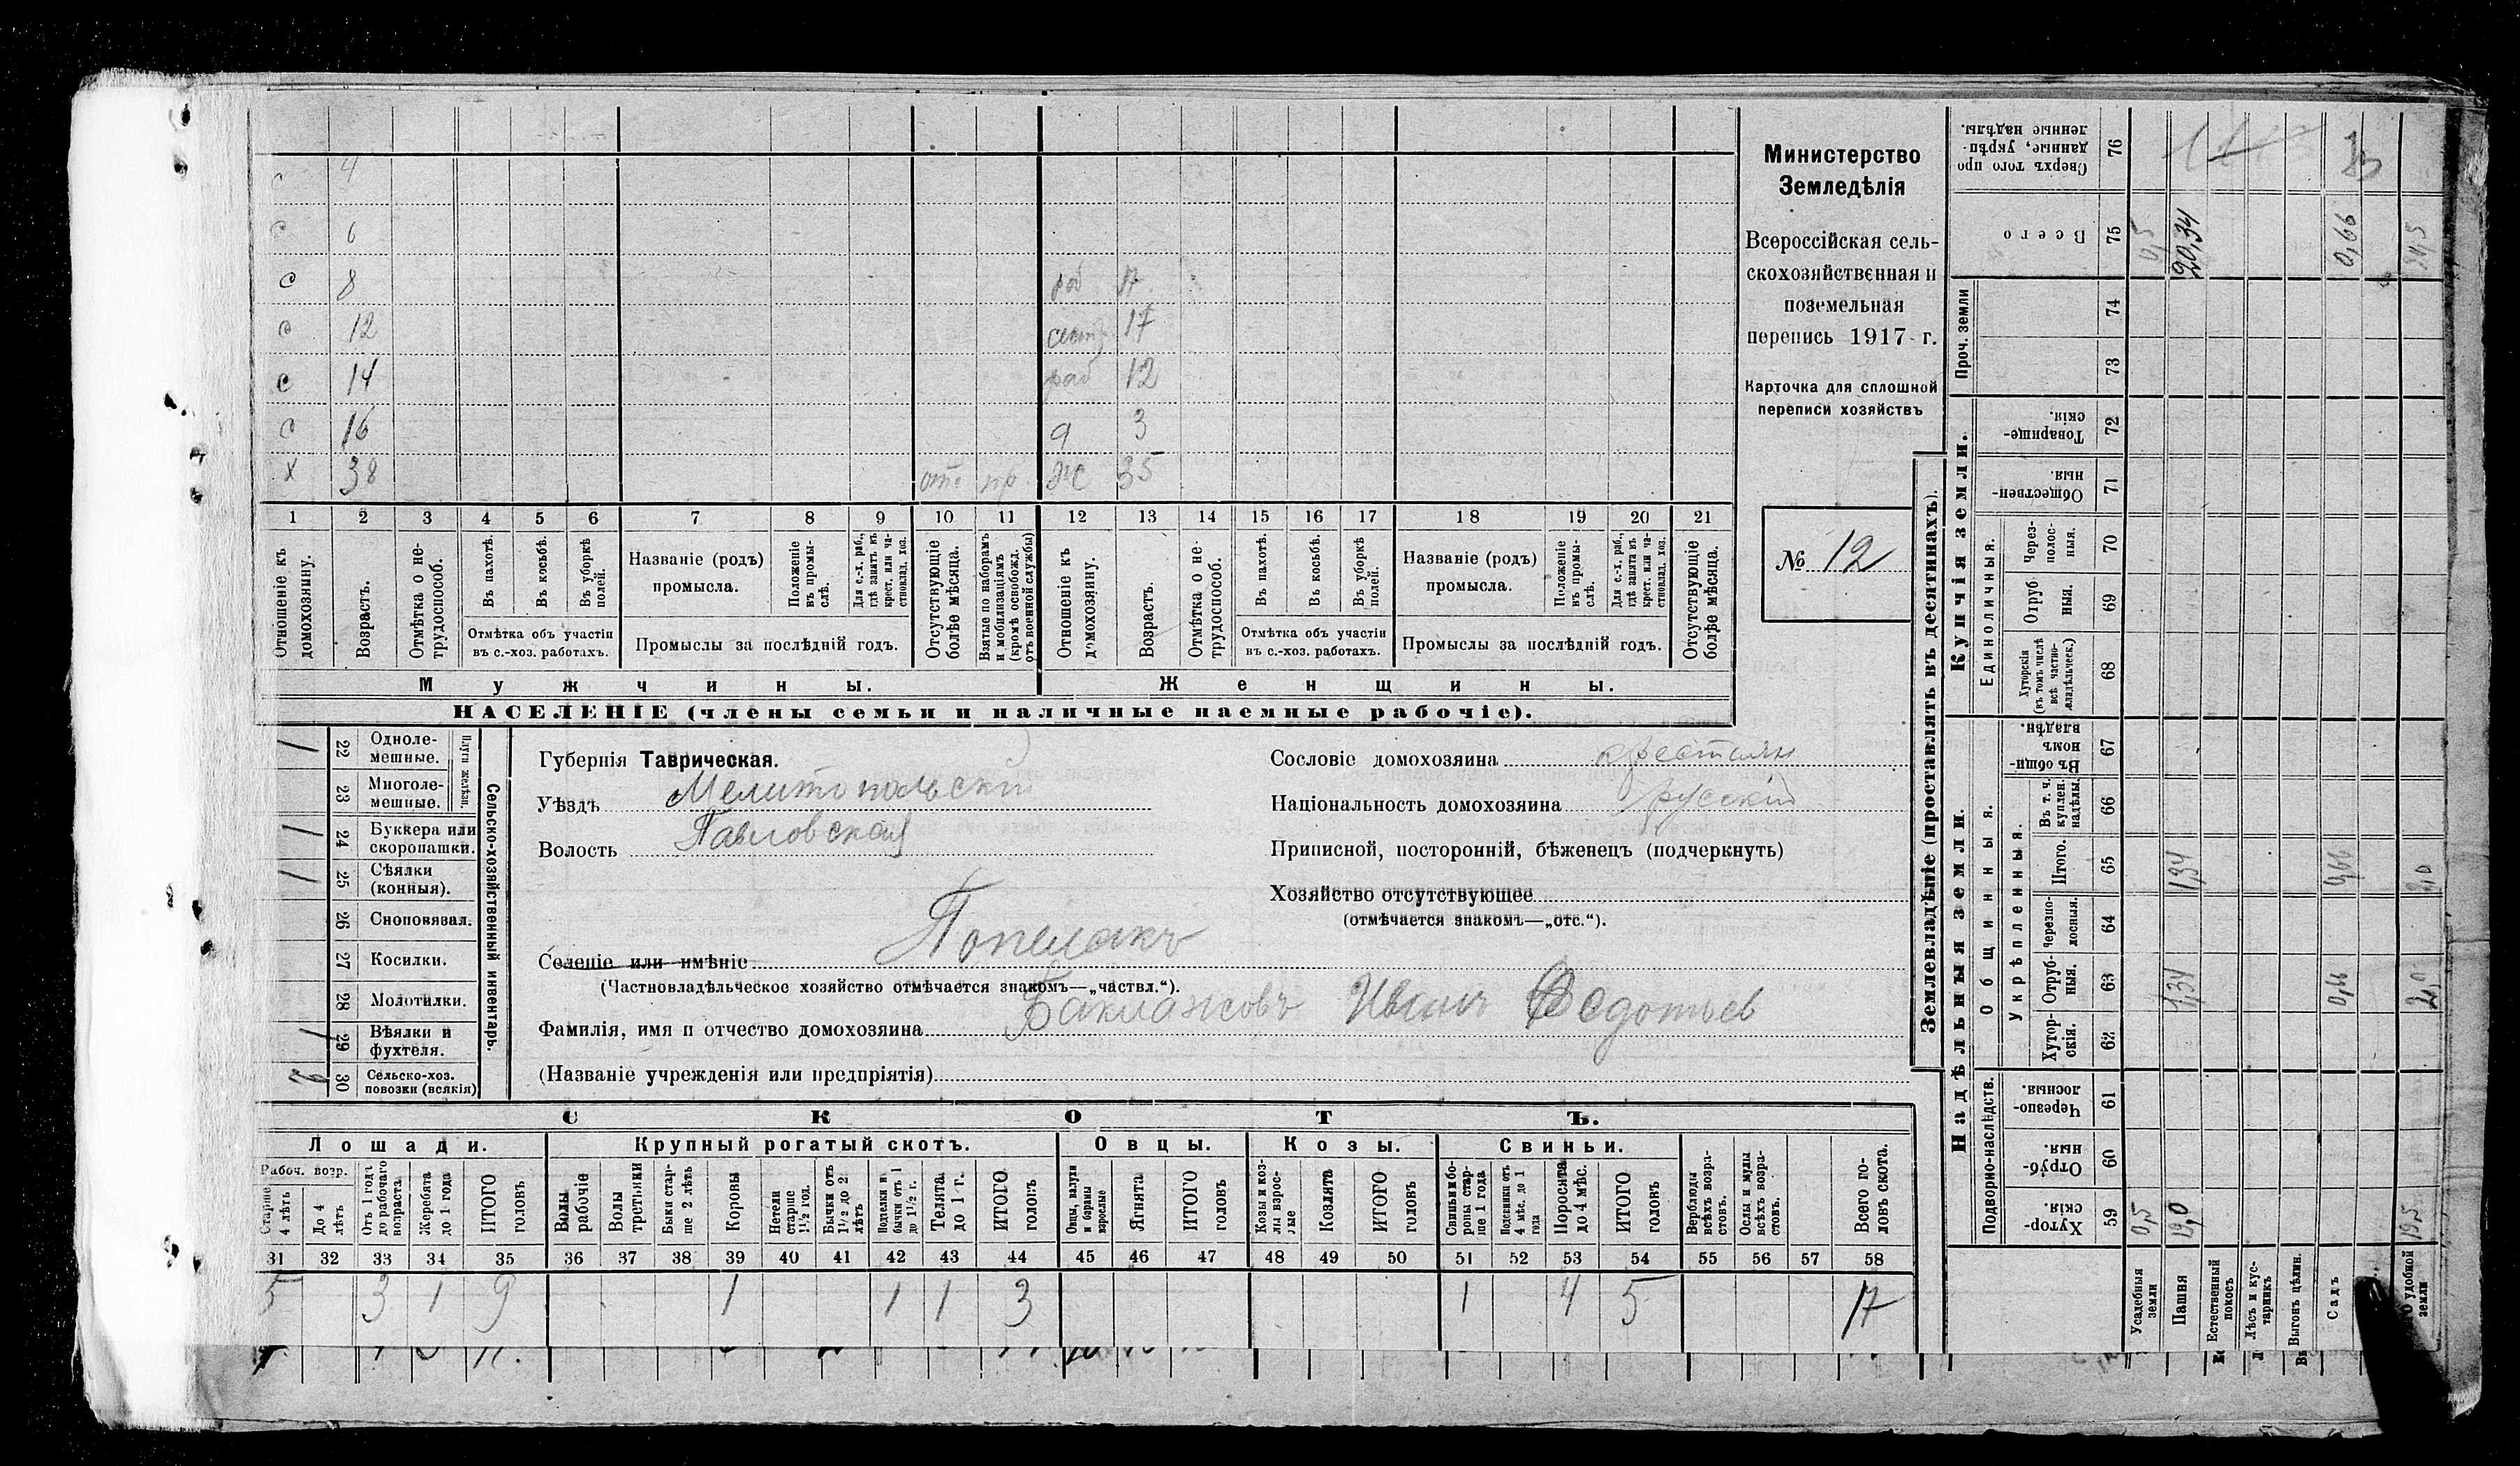 с 4
с 6
с 8 раб 17
с 12 17
с 14 раб 12
с 16 9 3
х 38 отс пр. Ж 35
1 2 3 4 5 6 7 8 9 10 11 12 13 14 15 16 17 18 19 20 21
Отношеніе къ домохозяину.
Возрастъ.
Отмѣтка о не-трудоспособ.
Въ пахотѣ.
Въ косьбѣ.
Въ уборкѣ полей.
Отмѣтка объ участіи въ с.-хоз. работахъ.
Названіе (родъ) промысла.
Положеніе въ промы-слѣ.
Для с.-х. раб., гдѣ занятъ въ крест. или ча-стновлад. хоз.
Промыслы за послѣдній годъ.
Отсутствующіе болѣе мѣсяца.
Взятые по наборамъ и мобилизаціямъ (кромѣ освобожд. отъ военной службы)
Отношеніе къ домохозяину.
Возрастъ.
Отмѣтка о не-трудоспособ.
Въ пахотѣ.
Въ косьбѣ.
Въ уборкѣ полей.
Отмѣтка объ участіи въ с.-хоз. работахъ.
Названіе (родъ) промысла.
Положеніе въ промы-слѣ.
Для с.-х. раб., гдѣ занята въ крест. или ча-стновлад. хоз.
Промыслы за послѣдній годъ.
Отсутствующіе болѣе мѣсяца.
Мужчины.
Женщины.
НАСЕЛЕНІЕ (члены семьи и наличные наемные рабочіе).
Министерство
Земледѣлія
Всероссійская сель-
скохозяйственная и
поземельная
перепись 1917 г.
Карточка для сплошной
переписи хозяйствъ
№ 12
Сельско-хозяйственный инвентарь.
Плуги желѣзн.
1 22 Однолемешные.
23 Многолемешные.
1 24 Буккера или скоропашки.
1 25 Сѣялки (конныя).
26 Сноповязал.
27 Косилки.
28 Молотилки.
1 29 Вѣялки и фухтеля.
30 Сельско-хоз. повозки (всякія)
Губернія Таврическая.
Уѣздъ Мелитопольскій
Волость Павловская
Селеніе или имѣніе Попелакъ
(Частновладѣльческое хозяйство отмѣчается знакомъ—„частвл.“).
Фамилія, имя и отчество домохозяина Баклажсовъ Иванъ Федотьев
(Названіе учрежденія или предпріятія)
Сословіе домохозяина крестьян
Національность домохозяина русскій
Приписной, посторонній, бѣженецъ (подчеркнуть)
Хозяйство отсутствующее
(отмѣчается знакомъ—„отс.“).
СКОТЪ.
Лошади. Крупный рогатый скотъ. Овцы. Козы. Свиньи.
Рабоч. возр.
Старше 4 лѣтъ
До 4 лѣтъ
Отъ 1 года до рабочаго возраста.
Жеребята до 1 года
ИТОГО головъ.
Волы рабочіе
Волы третьяки
Быки стар-ше 2 лѣтъ
Коровы
Нетели старше 1½ год.
Бычки отъ 1½ до 2 лѣтъ
бычки отъ 1 до 1½ г.
Телята до 1 г.
ИТОГО головъ
Овцы, валухи и бараны взрослые
Ягнята
ИТОГО головъ
Козы и коз-лы взрос-лые
Козлята
ИТОГО головъ
Свиньи бо-ровы стар-ше 1 года
Подсвинки отъ 4 мѣс. до 1 года
Поросята до 4 мѣс.
ИТОГО головъ
Верблюды всѣхъ возра-стовъ.
Ослы и мулы всѣхъ возра-стовъ.
Всего го-ловъ скота.
31 32 33 34 35 36 37 38 39 40 41 42 43 44 45 46 47 48 49 50 51 52 53 54 55 56 57 58
5 3 1 9 1 1 1 3 1 4 5 17
Землевладѣніе (проставлять въ десятинахъ).
Надѣльныя земли.
Купчія земли.
Проч. земли
Подворно-наслѣдств.
Общинныя.
Укрѣпленныя.
Единоличныя.
Хутор-скія. 59 0,5 19,0 19,5
Отруб-ныя. 60
Черезпо-лосныя. 61
Хутор-скія. 62
Отруб-ныя. 63 1,34 0,66 2,0
Черезпо-лосныя. 64
Итого. 65 1,34 0,66 2,0
Въ т. ч. куплен. надѣлы. 66
Въ общи-номъ владѣн. 67
Хуторскія (въ томъ числѣ всѣ частно-владѣльческ.) 68
Отруб-ныя. 69
Через-полос-ныя. 70
Обществен-ныя. 71
Товарище-скія. 72
73
74
Всего 75 0,5 20,34 0,66 21,5
Сверхъ того про-данные, укрѣп-ленные надѣлы. 76
Усадебныя земли
Пашня
Естественный покосъ
Лѣсъ и кус-тарникъ
Выгонъ цѣлин.
Садъ
удобной земли